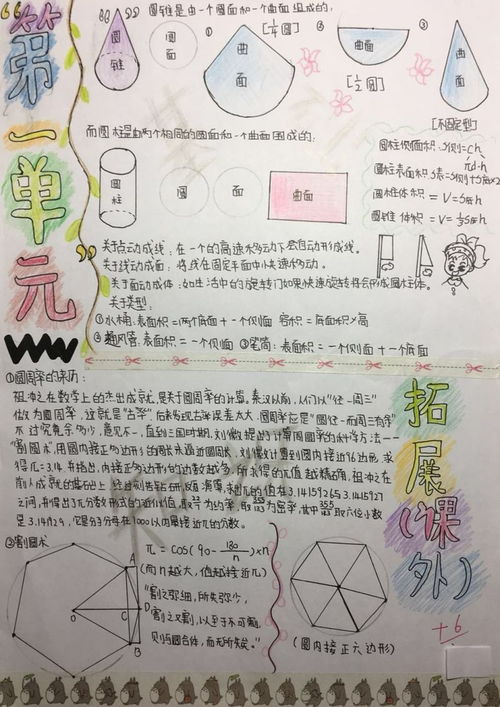 第一单元
圆锥是由一个圆面和一个曲面组成的:
圆
锥
圆
面
①
[1/4圆]
曲
面
②
曲面
[1/2圆]
③
曲
面
[不固定型]
而圆柱是由两个相同的圆面和一个曲面围成的:
圆
柱
圆
面
曲面
圆柱侧面积:S侧=Ch
πd·h
圆柱表面积:S表=S侧+S底×2
圆柱体积 = V=S底h
圆锥体积 = V=1/3S底h
关于点动成线:在一个的高速移动下会自动形成线。
关于线动成面:将线在固定平面中小快速移动。
关于面动成体:如生活中的旋转门如果快速旋转将会形成圆柱体。
关于类型:
①水桶:表面积=两个底面+一个侧面 容积=底面积×高
②通风管:表面积=一个侧面 ③笔筒:表面积=一个侧面+一个底面
拓展(课外)
①圆周率的来历:
祖冲之在数学上的杰出成就,是关于圆周率的计算,秦汉以前,人们以"径一周三"
做为圆周率,这就是"古率"后来发现古率误差太大,圆周率应是"圆径一而周三有余"
不过究竟余多少,意见不一,直到三国时期,刘徽提出了计算圆周率的科学方法——
"割圆术",用圆内接正多边形的周长来逼近圆周长,刘徽计算到圆内接近96边形,求
得π=3.14,并指出,内接正多边形的边数越多,所求得的π值越精确,祖冲之在
前人成就的基础上,经过刻苦钻研,反复演算,求出π的值在3.1415926与3.1415927
之间,并得出了π分数形式的近似值,取22/7为约率,取355/113为密率,其中355/113取六位小数
是3.141929,它是分子分母在1000以内最接近π的分数。
②割圆术
A
O
C
D
B
π=cos(90-180/n)×n
(而n越大,值越接近π)
"割之弥细,所失弥少,
割之又割,以至于不可割,
则与圆合体,而无所失矣。"
(圆内接正六边形)
+6